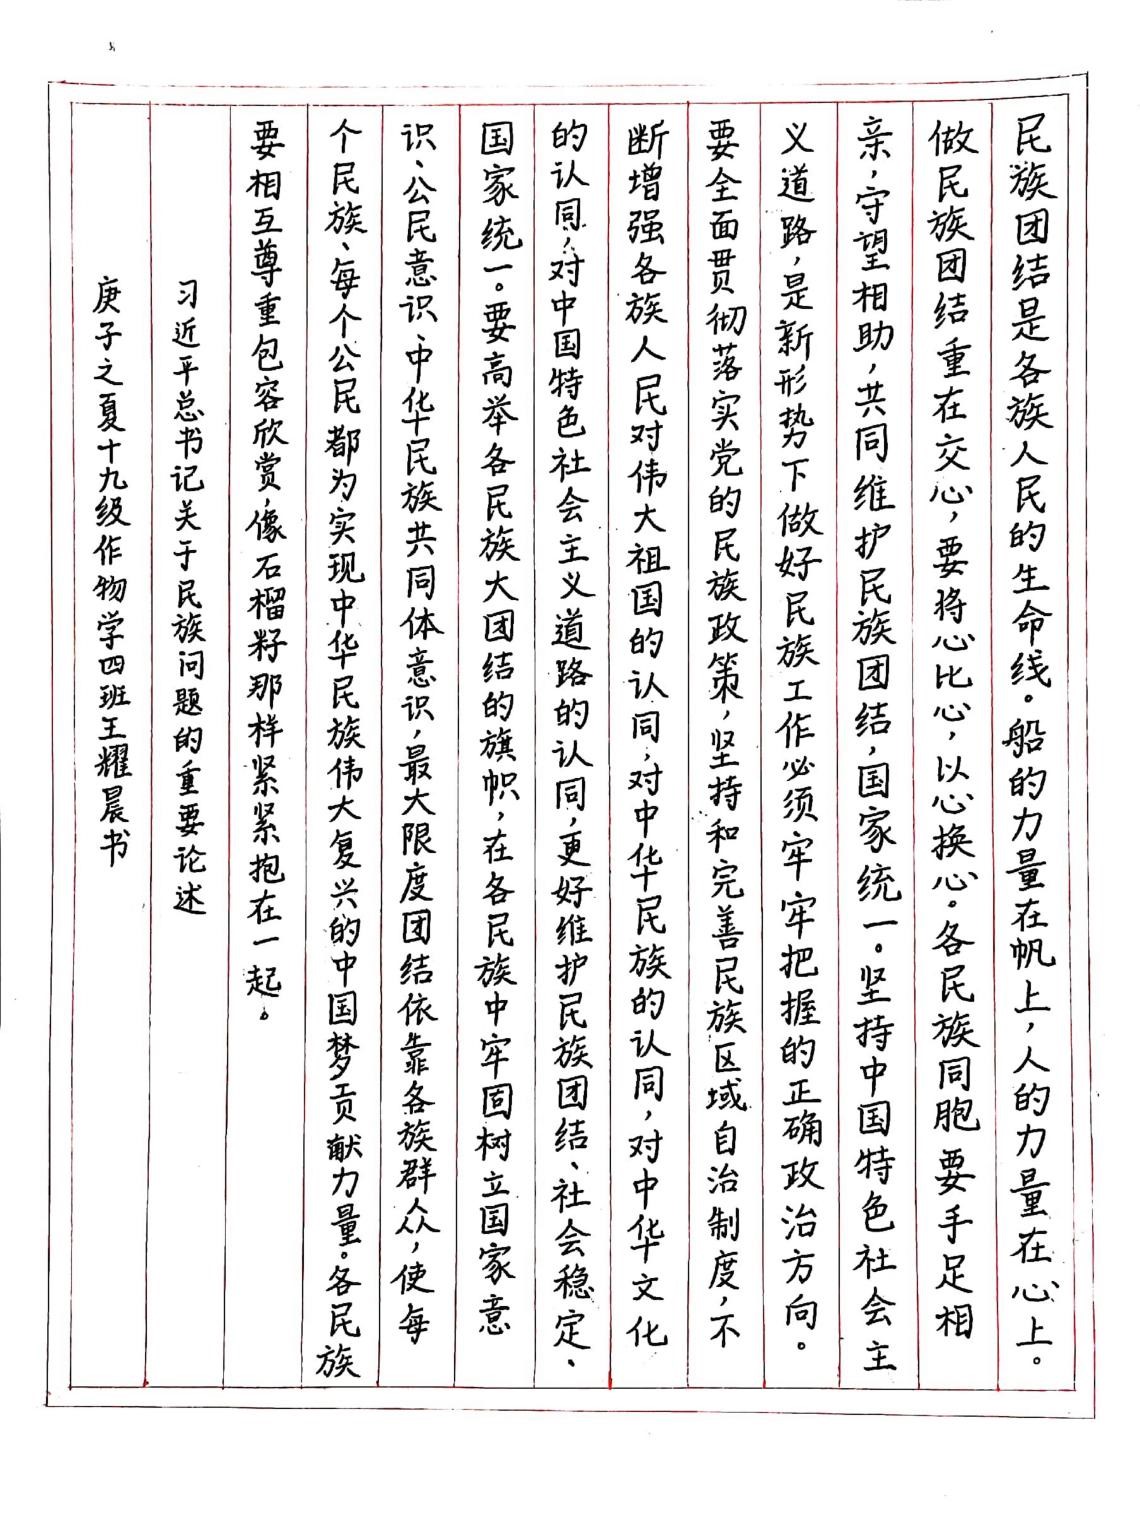 民族团结是各族人民的生命线。船的力量在帆上，人的力量在心上。
做民族团结重在交心，要将心比心，以心换心。各民族同胞要手足相
亲，守望相助，共同维护民族团结，国家统一。坚持中国特色社会主
义道路，是新形势下做好民族工作必须牢牢把握的正确政治方向。
要全面贯彻落实党的民族政策，坚持和完善民族区域自治制度，不
断增强各族人民对伟大祖国的认同，对中华民族的认同，对中华文化
的认同，对中国特色社会主义道路的认同，更好维护民族团结、社会稳定、
国家统一。要高举各民族大团结的旗帜，在各民族中牢固树立国家意
识、公民意识、中华民族共同体意识，最大限度团结依靠各族群众，使每
个民族、每个公民都为实现中华民族伟大复兴的中国梦贡献力量。各民族
要相互尊重包容欣赏，像石榴籽那样紧紧抱在一起。
习近平总书记关于民族问题的重要论述
庚子之夏十九级作物学四班王耀晨书